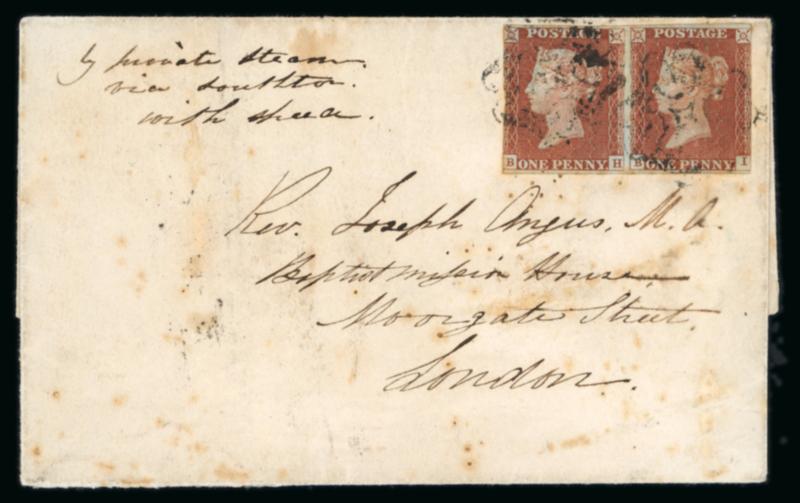 by private steam.
via Southton.
with speed.
POSTAGE
ONE PENNY
B H
POSTAGE
ONE PENNY
B I
Rev. Joseph Angus, M.A.
Baptist Mission House,
Moorgate Street,
London.